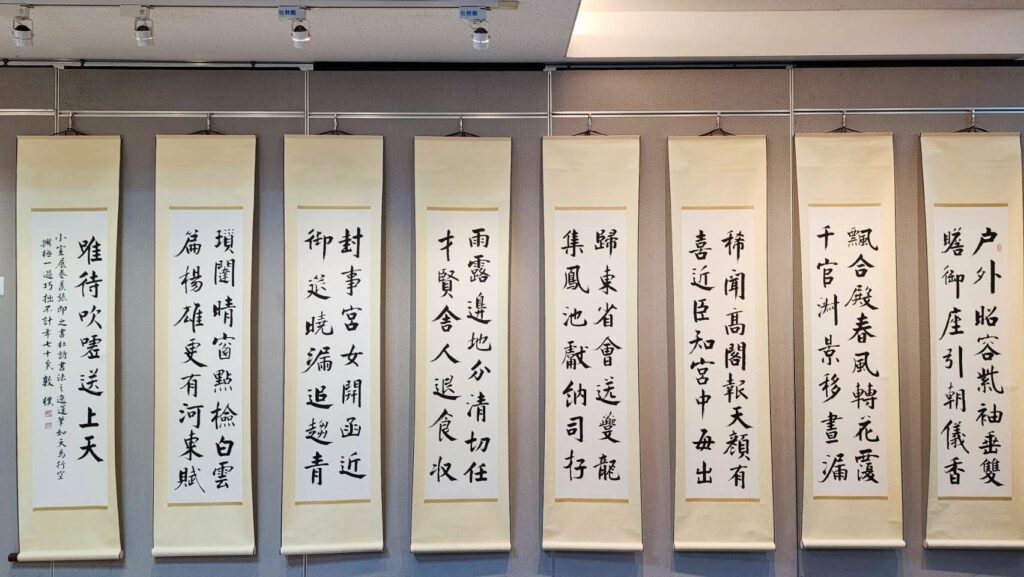 户外昭容紫袖垂雙
瞻御座引朝儀香
飄合殿春風轉花覆
千官淑景移晝漏
稀聞髙閣報天顏有
喜近臣知宮中每出
歸東省會送夔龍
集鳳池獻納司存
雨露邊地分清切任
才賢舍人退食収
封事宮女開函近
御筵曉漏追趨青
瑣闥晴窗點檢白雲
篇楊雄更有河東賦
唯待吹噓送上天
小室展卷羡張即之書杜詩書法之逸運筆如天馬行空
興一過巧拙不計年七十矣敦樸